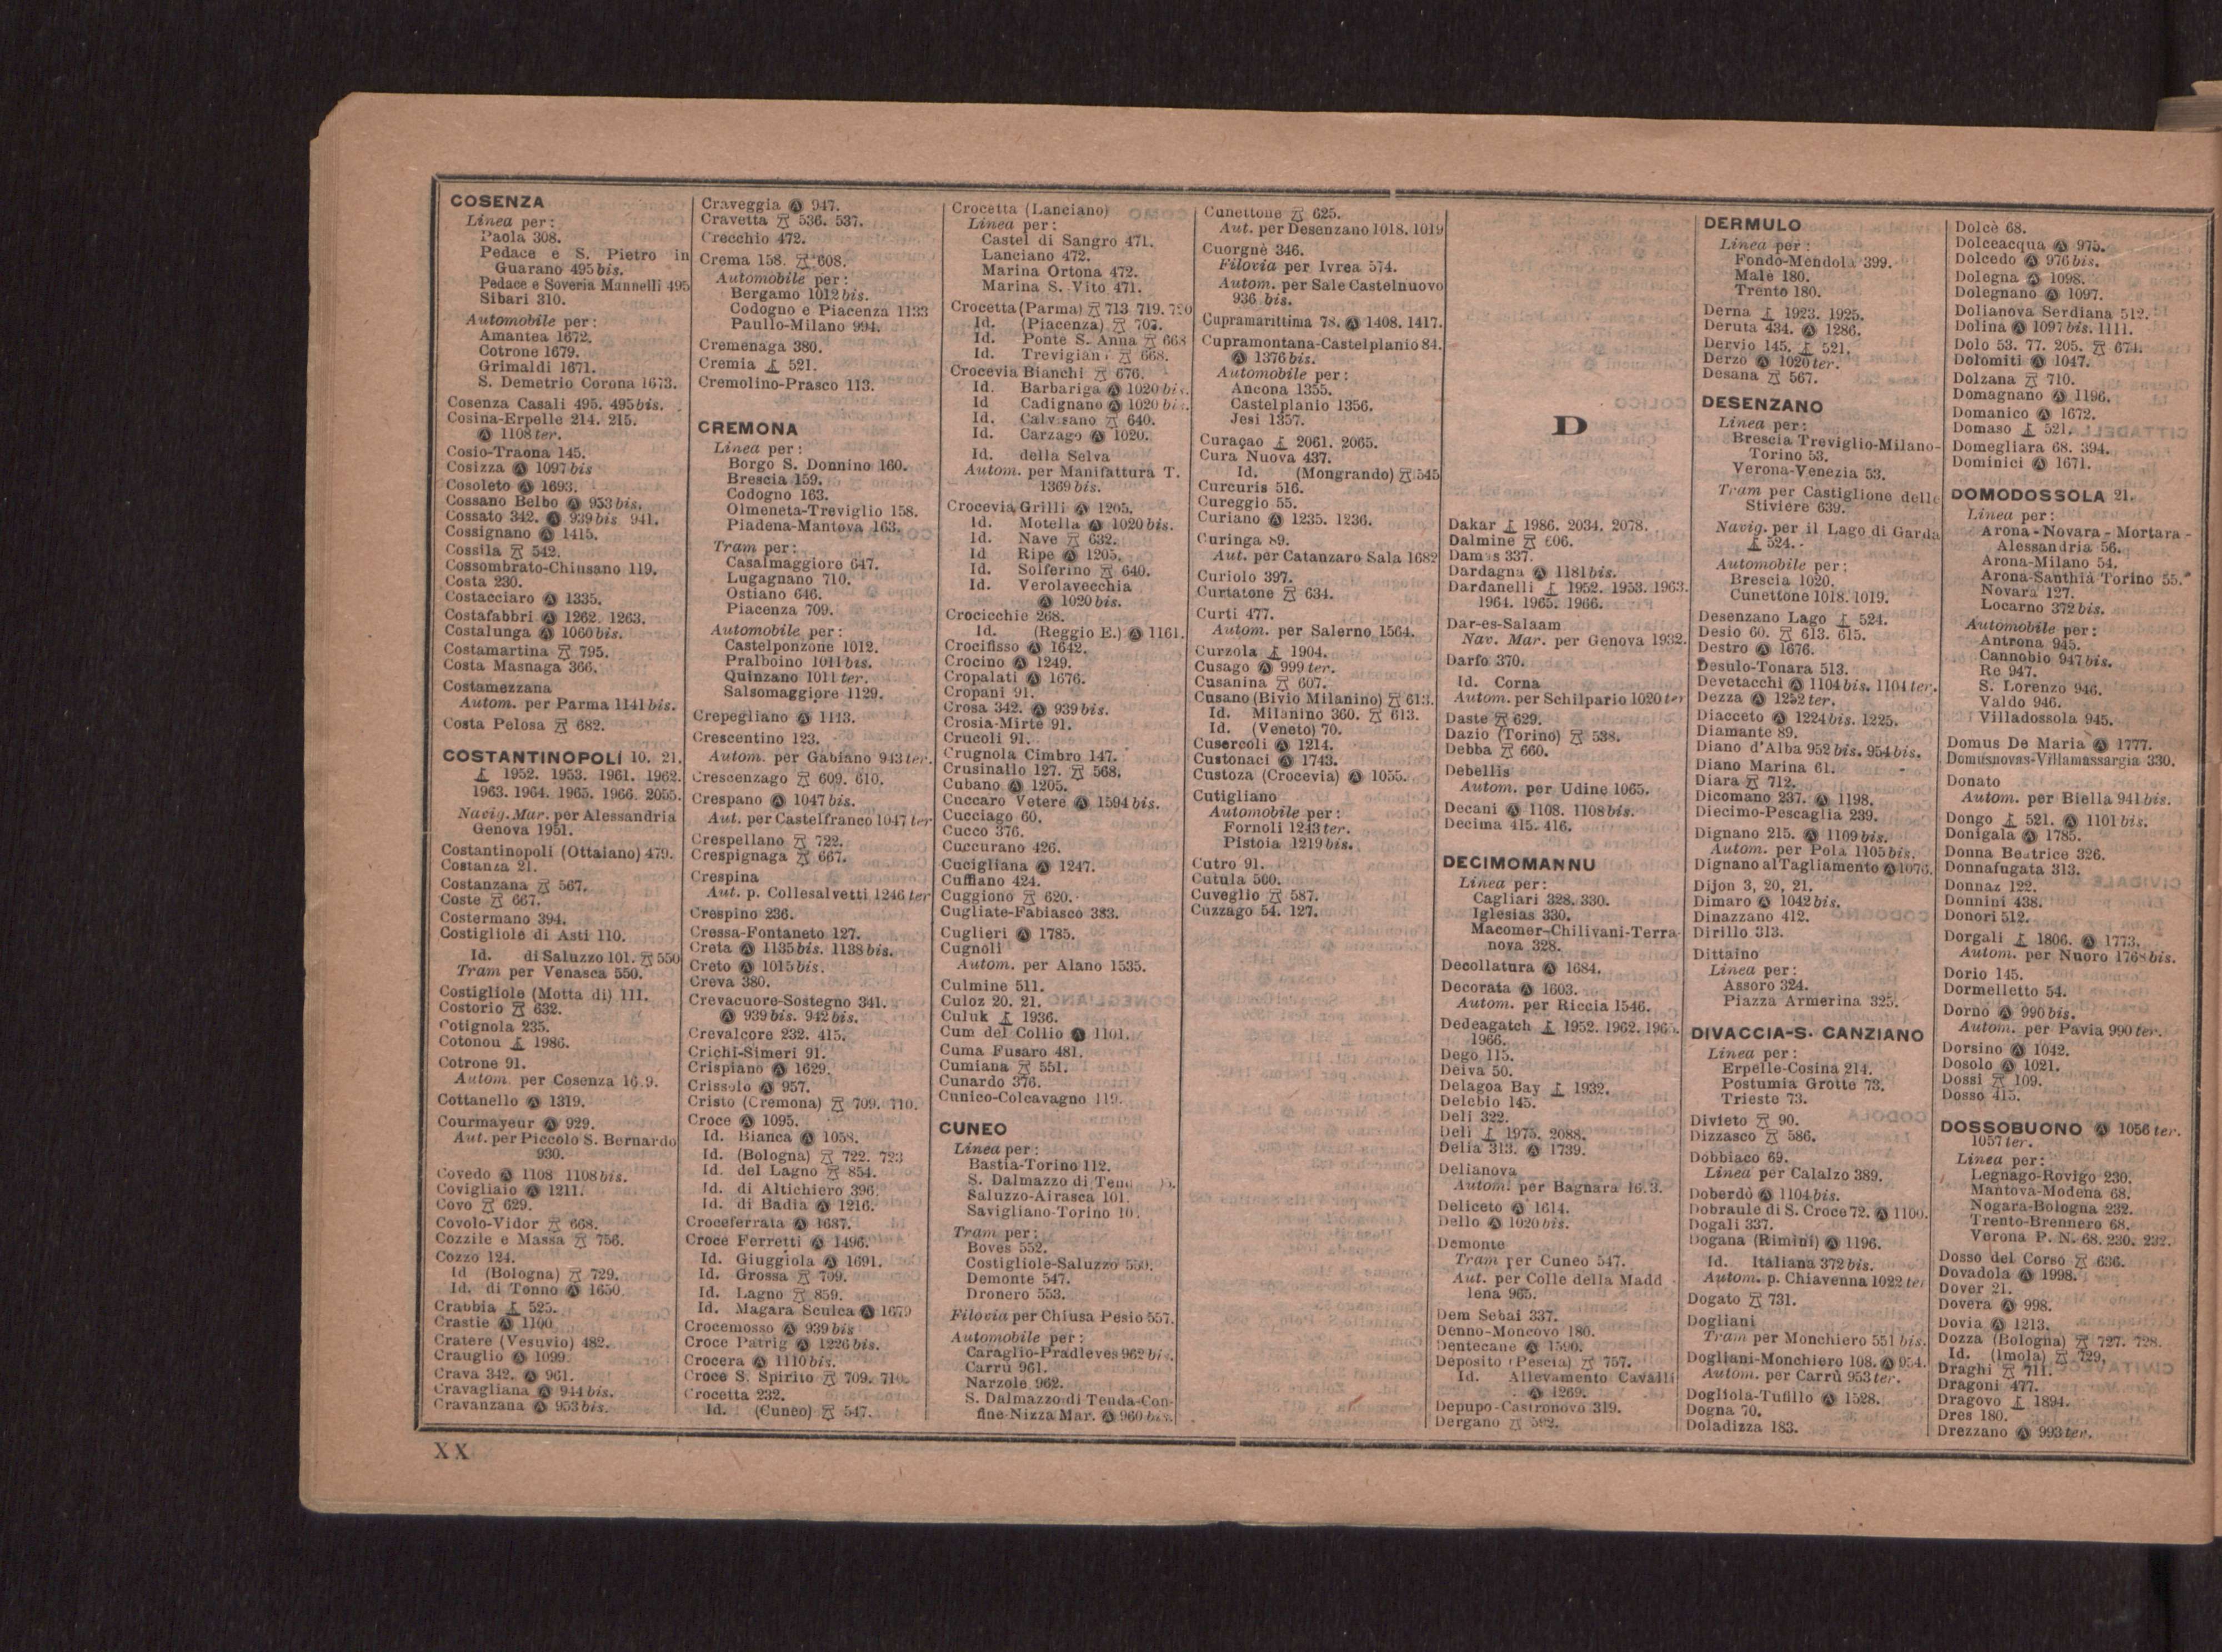 COSENZA
Linea per:
Paola 308.
Pedace e S. Pietro in
Guarano 495 bis.
Pedace e Soveria Mannelli 495
Sibari 310.
Automobile per:
Amantea 1672.
Cotrone 1679.
Grimaldi 1671.
S. Demetrio Corona 1673.
Cosenza Casali 495. 495 bis.
Cosina-Erpelle 214. 215.
Ⓐ 1108 ter.
Cosio-Traona 145.
Cosizza Ⓐ 1097 bis
Cosoleto Ⓐ 1693.
Cossano Belbo Ⓐ 953 bis.
Cossato 342. Ⓐ 939 bis 941.
Cossignano Ⓐ 1415.
Cossila 542.
Cossombrato-Chiusano 119.
Costa 230.
Costacciaro Ⓐ 1335.
Costafabbri Ⓐ 1262. 1263.
Costalunga Ⓐ 1060 bis.
Costamartina 795.
Costa Masnaga 366.
Costamezzana
Autom. per Parma 1141 bis.
Costa Pelosa 682.
COSTANTINOPOLI 10. 21.
1952. 1953. 1961. 1962.
1963. 1964. 1965. 1966. 2055.
Navig. Mar. per Alessandria
Genova 1951.
Costantinopoli (Ottaiano) 479.
Costanza 21.
Costanzana 567.
Coste 667.
Costermano 394.
Costigliole di Asti 110.
Id. di Saluzzo 101. 550
Tram per Venasca 550.
Costigliole (Motta di) 111.
Costorio 632.
Cotignola 235.
Cotonou 1986.
Cotrone 91.
Autom. per Cosenza
Cottanello Ⓐ 1319.
Courmayeur Ⓐ 929.
Aut. per Piccolo S. Bernardo
930.
Covedo Ⓐ 1108 1108 bis.
Covigliaio Ⓐ 1211.
Covo 629.
Covolo-Vidor 668.
Cozzile e Massa 756.
Cozzo 124.
Id (Bologna) 729.
Id. di Tonno Ⓐ 1650.
Crabbia 525.
Crastie Ⓐ 1100
Cratere (Vesuvio) 482.
Crauglio Ⓐ 1099.
Crava 342. Ⓐ 961.
Cravagliana Ⓐ 944 bis.
Cravanzana Ⓐ 953 bis.
Craveggia Ⓐ 947.
Cravetta 536. 537.
Crecchio 472.
Crema 158. 608.
Automobile per:
Bergamo 1012 bis.
Codogno e Piacenza 1133
Paullo-Milano 994.
Cremenaga 380.
Cremia 521.
Cremolino-Prasco 113.
CREMONA
Linea per:
Borgo S. Donnino 160.
Brescia 159.
Codogno 163.
Olmeneta-Treviglio 158.
Piadena-Mantova 163.
Tram per:
Casalmaggiore 647.
Lugagnano 710.
Ostiano 646.
Piacenza 709.
Automobile per:
Castelponzone 1012.
Pralboino 1011 bis.
Quinzano 1011 ter.
Salsomaggiore 1129.
Crepegliano Ⓐ 1113.
Crescentino 123.
Autom. per Gabiano 943 ter.
Crescenzago 609. 610.
Crespano Ⓐ 1047 bis.
Aut. per Castelfranco 1047 ter
Crespellano 722.
Crespignaga 667.
Crespina
Aut. p. Collesalvetti 1246 ter
Crespino 236.
Cressa-Fontaneto 127.
Creta Ⓐ 1135 bis. 1138 bis.
Creto Ⓐ 1015 bis.
Creva 380.
Crevacuore-Sostegno 341.
Ⓐ 939 bis. 942 bis.
Crevalcore 232. 415.
Crichi-Simeri 91.
Crispiano Ⓐ 1629.
Crissolo Ⓐ 957.
Cristo (Cremona) 709. 710.
Croce Ⓐ 1095.
Id. Bianca Ⓐ 1058.
Id. (Bologna) 722. 723
Id. del Lagno 854.
Id. di Altichiero 396.
Id. di Badia Ⓐ 1216.
Croceferrata Ⓐ 1687.
Croce Ferretti Ⓐ 1496.
Id. Giuggiola Ⓐ 1691.
Id. Grossa 709.
Id. Lagno 859.
Id. Magara Sculca Ⓐ 1679
Crocemosso Ⓐ 939 bis
Croce Patrig Ⓐ 1226 bis.
Crocera Ⓐ 1110 bis.
Croce S. Spirito 709. 710.
Crocetta 232.
Id. (Cuneo) 547.
Crocetta (Lanciano)
Linea per:
Castel di Sangro 471.
Lanciano 472.
Marina Ortona 472.
Marina S. Vito 471.
Crocetta (Parma) 713 719. 720
Id. (Piacenza) 707.
Id. Ponte S. Anna 668
Id. Trevigiana 668.
Crocevia Bianchi 676.
Id. Barbariga Ⓐ 1020 bis.
Id Cadignano Ⓐ 1020 bis.
Id. Calvisano 640.
Id. Carzago Ⓐ 1020.
Id. della Selva
Autom. per Manifattura T.
1369 bis.
Crocevia Grilli Ⓐ 1205.
Id. Motella Ⓐ 1020 bis.
Id. Nave 632.
Id Ripe Ⓐ 1205.
Id. Solferino 640.
Id. Verolavecchia
Ⓐ 1020 bis.
Crocicchie 268.
Id. (Reggio E.) Ⓐ 1161.
Crocifisso Ⓐ 1642.
Crocino Ⓐ 1249.
Cropalati Ⓐ 1676.
Cropani 91.
Crosa 342. Ⓐ 939 bis.
Crosia-Mirte 91.
Crucoli 91.
Crugnola Cimbro 147.
Crusinallo 127. 568.
Cubano Ⓐ 1205.
Cuccaro Vetere Ⓐ 1594 bis.
Cucciago 60.
Cucco 376.
Cuccurano 426.
Cucigliana Ⓐ 1247.
Cuffiano 424.
Cuggiono 620.
Cugliate-Fabiasco 383.
Cuglieri Ⓐ 1785.
Cugnoli
Autom. per Alano 1535.
Culmine 511.
Culoz 20. 21.
Culuk 1936.
Cum del Collio Ⓐ 1101.
Cuma Fusaro 481.
Cumiana 551.
Cunardo 376.
Cunico-Colcavagno 119.
CUNEO
Linea per:
Bastia-Torino 112.
S. Dalmazzo di
Saluzzo-Airasca 101.
Savigliano-Torino
Tram per:
Boves 552.
Costigliole-Saluzzo 550.
Demonte 547.
Dronero 553.
Filovia per Chiusa Pesio 557.
Automobile per:
Caraglio-Pradleves 962 bis.
Carrù 961.
Narzole 962.
S. Dalmazzo di Tenda-Con-
fine-Nizza Mar. Ⓐ 960 bis.
Cunettone 625.
Aut. per Desenzano 1018. 1019
Cuorgnè 346.
Filovia per Ivrea 574.
Autom. per Sale Castelnuovo
936 bis.
Cupramarittima 78. Ⓐ 1408. 1417.
Cupramontana-Castelplanio 84.
Ⓐ 1376 bis.
Automobile per:
Ancona 1355.
Castelplanio 1356.
Jesi 1357.
Curaçao 2061. 2065.
Cura Nuova 437.
Id. (Mongrando) 545
Curcuris 516.
Cureggio 55.
Curiano Ⓐ 1235. 1236.
Curinga 89.
Aut. per Catanzaro Sala 1682
Curiolo 397.
Curtatone 634.
Curti 477.
Autom. per Salerno 1564.
Curzola 1904.
Cusago Ⓐ 999 ter.
Cusanina 607.
Cusano (Bivio Milanino) 613.
Id. Milanino 360. 613.
Id. (Veneto) 70.
Cusercoli Ⓐ 1214.
Custonaci Ⓐ 1743.
Custoza (Crocevia) Ⓐ 1055.
Cutigliano
Automobile per:
Fornoli 1243 ter.
Pistoia 1219 bis.
Cutro 91.
Cutula 500.
Cuveglio 587.
Cuzzago 54. 127.
D
Dakar 1986. 2034. 2078.
Dalmine 606.
Damas 337.
Dardagna Ⓐ 1181 bis.
Dardanelli 1952. 1953. 1963.
1964. 1965. 1966.
Dar-es-Salaam
Nav. Mar. per Genova 1932.
Darfo 370.
Id. Corna
Autom. per Schilpario 1020 ter
Daste 629.
Dazio (Torino) 538.
Debba 660.
Debellis
Autom. per Udine 1065.
Decani Ⓐ 1108. 1108 bis.
Decima 415. 416.
DECIMOMANNU
Linea per:
Cagliari 328. 330.
Iglesias 330.
Macomer-Chilivani-Terra-
nova 328.
Decollatura Ⓐ 1684.
Decorata Ⓐ 1603.
Autom. per Riccia 1546.
Dedeagatch 1952. 1962.
1966.
Dego 115.
Deiva 50.
Delagoa Bay 1932.
Delebio 145.
Deli 322.
Deli 1975. 2088.
Delia 313. Ⓐ 1739.
Delianova
Autom. per Bagnara
Deliceto Ⓐ 1614.
Dello Ⓐ 1020 bis.
Demonte
Tram per Cuneo 547.
Aut. per Colle della Madd
lena 965.
Dem Sebai 337.
Denno-Moncovo 180.
Dentecane Ⓐ 1590.
Deposito (Pescia) 757.
Id. Allevamento Cavalli
Ⓐ 1269.
Depupo-Castronovo 319.
Dergano 592.
DERMULO
Linea per:
Fondo-Mendola 399.
Malè 180.
Trento 180.
Derna 1923. 1925.
Deruta 434. Ⓐ 1286.
Dervio 145. 521.
Derzo Ⓐ 1020 ter.
Desana 567.
DESENZANO
Linea per:
Brescia Treviglio-Milano-
Torino 53.
Verona-Venezia 53.
Tram per Castiglione delle
Stiviere 639.
Navig. per il Lago di Garda
524.
Automobile per:
Brescia 1020.
Cunettone 1018. 1019.
Desenzano Lago 524.
Desio 60. 613. 615.
Destro Ⓐ 1676.
Desulo-Tonara 513.
Devetacchi Ⓐ 1104 bis. 1104 ter.
Dezza Ⓐ 1252 ter.
Diacceto Ⓐ 1224 bis. 1225.
Diamante 89.
Diano d'Alba 952 bis. 954 bis.
Diano Marina 61.
Diara 712.
Dicomano 237. Ⓐ 1198.
Diecimo-Pescaglia 239.
Dignano 215. Ⓐ 1109 bis.
Autom. per Pola 1105 bis.
Dignano al Tagliamento Ⓐ 1076.
Dijon 3, 20, 21.
Dimaro Ⓐ 1042 bis.
Dinazzano 412.
Dirillo 313.
Dittaino
Linea per:
Assoro 324.
Piazza Armerina 325.
DIVACCIA-S. CANZIANO
Linea per:
Erpelle-Cosina 214.
Postumia Grotte 73.
Trieste 73.
Divieto 90.
Dizzasco 586.
Dobbiaco 69.
Linea per Calalzo 389.
Doberdò Ⓐ 1104 bis.
Dobraule di S. Croce 72. Ⓐ 1100.
Dogali 337.
Dogana (Rimini) Ⓐ 1196.
Id. Italiana 372 bis.
Autom. p. Chiavenna 1022 ter
Dogato 731.
Dogliani
Tram per Monchiero 551 bis.
Dogliani-Monchiero 108. Ⓐ 954.
Autom. per Carrù 953 ter.
Dogliola-Tufillo Ⓐ 1528.
Dogna 70.
Doladizza 183.
Dolcè 68.
Dolceacqua Ⓐ 975.
Dolcedo Ⓐ 976 bis.
Dolegna Ⓐ 1098.
Dolegnano Ⓐ 1097.
Dolianova Serdiana 512.
Dolina Ⓐ 1097 bis. 1111.
Dolo 53. 77. 205. 674.
Dolomiti Ⓐ 1047.
Dolzana 710.
Domagnano Ⓐ 1196.
Domanico Ⓐ 1672.
Domaso 521.
Domegliara 68. 394.
Dominici Ⓐ 1671.
DOMODOSSOLA 21.
Linea per:
Arona-Novara-Mortara-
Alessandria 56.
Arona-Milano 54.
Arona-Santhià Torino 55.
Novara 127.
Locarno 372 bis.
Automobile per:
Antrona 945.
Cannobio 947 bis.
Re 947.
S. Lorenzo 946.
Valdo 946.
Villadossola 945.
Domus De Maria Ⓐ 1777.
Domusnovas-Villamassargia 330.
Donato
Autom. per Biella 941 bis.
Dongo 521. Ⓐ 1101 bis.
Donigala Ⓐ 1785.
Donna Beatrice 326.
Donnafugata 313.
Donnaz 122.
Donnini 438.
Donori 512.
Dorgali 1806. Ⓐ 1773.
Autom. per Nuoro 1768 bis.
Dorio 145.
Dormelletto 54.
Dorno Ⓐ 990 bis.
Autom. per Pavia 990 ter.
Dorsino Ⓐ 1042.
Dosolo Ⓐ 1021.
Dossi 109.
Dosso 415.
DOSSOBUONO Ⓐ 1056 ter.
1057 ter.
Linea per:
Legnago-Rovigo 230.
Mantova-Modena 68.
Nogara-Bologna 232.
Trento-Brennero 68.
Verona P. N. 68. 230. 232.
Dosso del Corso 636.
Dovadola Ⓐ 1998.
Dover 21.
Dovera Ⓐ 998.
Dovia Ⓐ 1213.
Dozza (Bologna) 727. 728.
Id. (Imola) 729.
Draghi 711.
Dragoni 477.
Dragovo 1894.
Dres 180.
Drezzano Ⓐ 993 ter.
XX